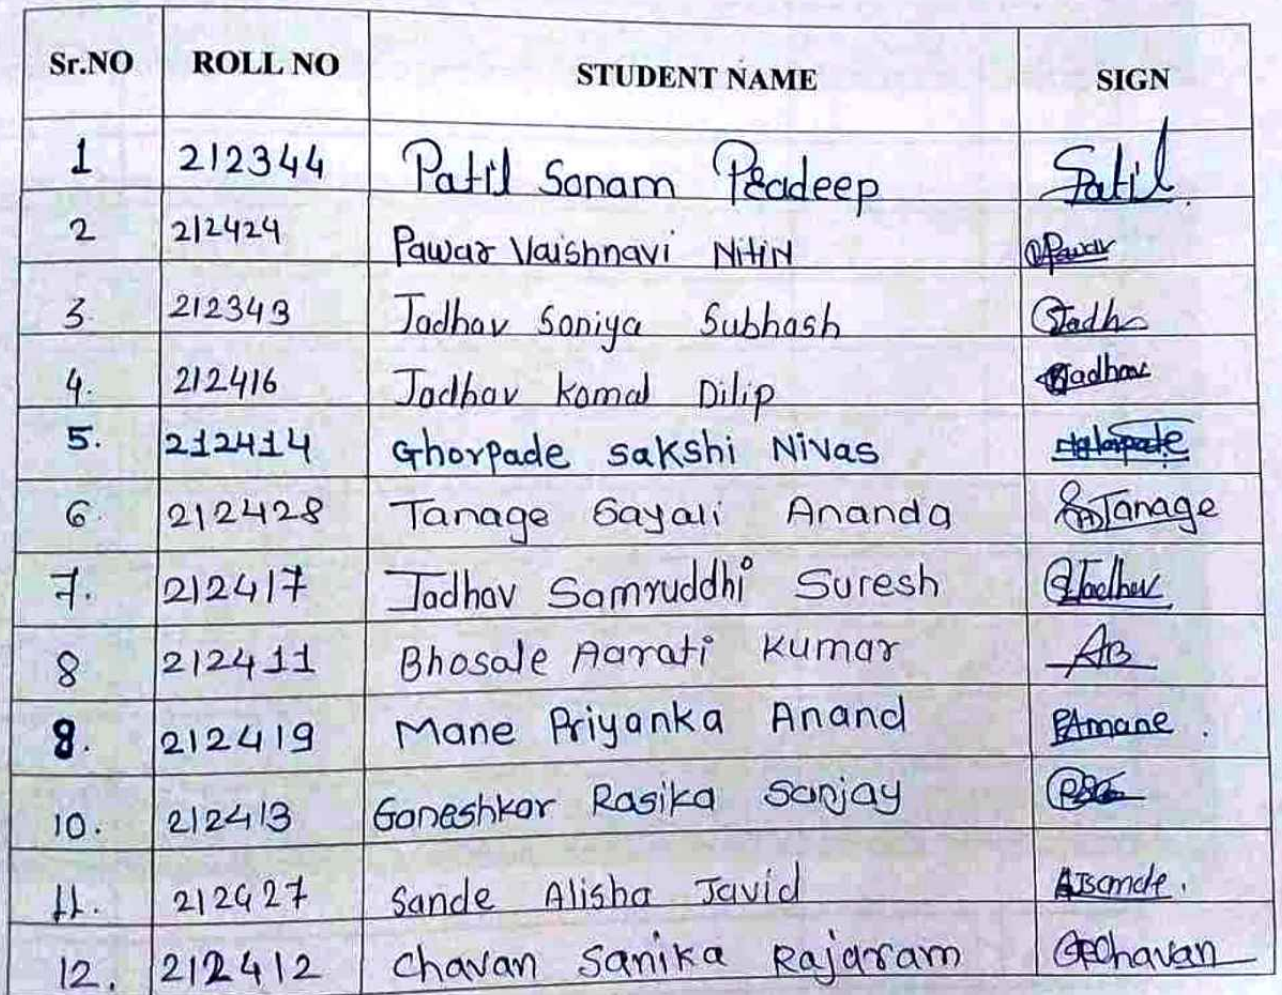 Sr.NO ROLL NO STUDENT NAME SIGN
1 212344 Patil Sonam Pradeep Patil.
2 212424 Pawar Vaishnavi NitiN Pawar
3. 212343 Jadhav Soniya Subhash Jadh
4. 212416 Jadhav Komal Dilip Jadhav
5. 212414 Ghorpade Sakshi Nivas Ghorpade
6. 212428 Tanage Sayali Ananda Tanage
7. 212417 Jadhav Samruddhi Suresh Jadhav
8 212411 Bhosale Aarati Kumar AB
9. 212419 Mane Priyanka Anand PAmane.
10. 212413 Goneshkar Rasika Sanjay
11. 212427 Sande Alisha Javid AJSande.
12. 212412 Chavan Sanika Rajaram Chavan